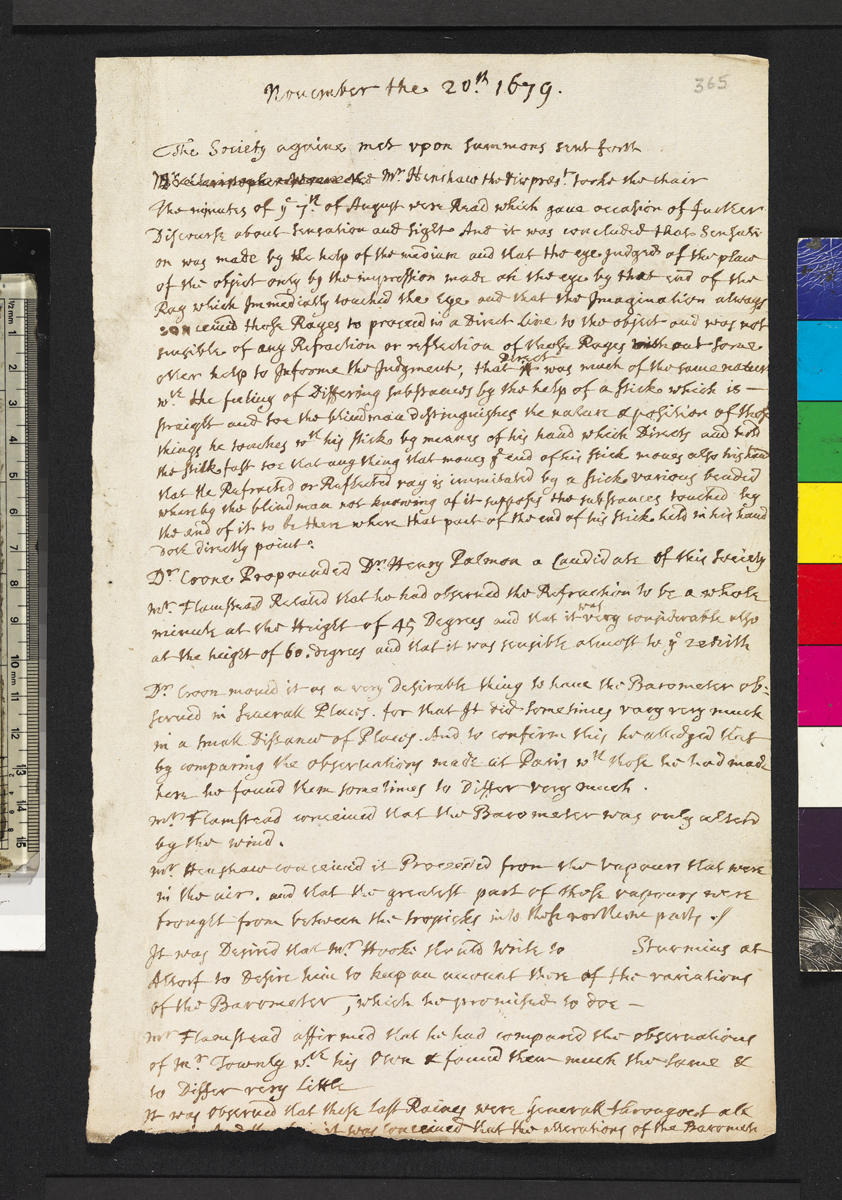 November the 20th 1679.
365
The Society againe met upon Summons sent forth
Mr Henshaw the vicepresᵗ tooke the chair
The minutes of yᵉ 7th of August were Read which gave occasion of further
Discourse about Sensation and sight. And it was concluded that Sensati
on was made by the help of the medium and that the eye Judged of the place
of the object only by the impression made at the eye by that end of the
Ray which Immediatly touched the Eye and that the Imagination always
conceived those Rayes to proceed in a Direct Line to the object and was not
sensible of any Refraction or reflection of those Rayes without some
other help to Informe the Judgment, that Direct was much of the same nature
wth the feeling of Differing substances by the help of a stick which is –
straight and soe the blind man distinguishes the nature & position of those
things he touches wth his stick by meanes of his hand which Directs and hold
the stick fast soe that any thing that moves yᵉ end of his stick moves also his hand
that the Refracted or Reflected ray is immitated by a stick various bended
whereby the blind man not knowing of it supposes the substances touched by
the end of it to be there where that part of the end of his stick held in his hand
doth directly point.
Dr. Croone Propounded Dr. Henry Palmon a Candidate of this Society
Mr. Flamstead Related that he had observed the Refraction to be a whole
minute at the Height of 45 Degrees and that it was very considerable also
at the height of 60. degrees and that it was sensible almost to yᵉ zenith
Dr. Croon moved it as a very desirable thing to have the Barometer ob:
served in Severall Places. for that It did sometimes vary very much
in a small Distance of Places. And to confirm this he alledged that
by comparing the observations made at Paris wth those he had made
here he found them sometimes to Differ very much.
Mr. Flamstead conceived that the Barometer was only alterd
by the wind.
Mr Henshaw conceived it Proceeded from the vapours that were
in the air. and that the greatest part of those vapours were
brought from between the tropicks into these northerne parts./
It was Desired that Mr. Hooke should write to Sturmius at
Altorf to Desire him to keep an account there of the variations
of the Barometer, which he promised to doe –
Mr Flamstead affirmed that he had compared the observations
of Mr. Townly wth his Own & found them much the same &
to Differ very Little
It was observed that these last Raines were Generall througout all
it was conceived that the alterations of the Baromete